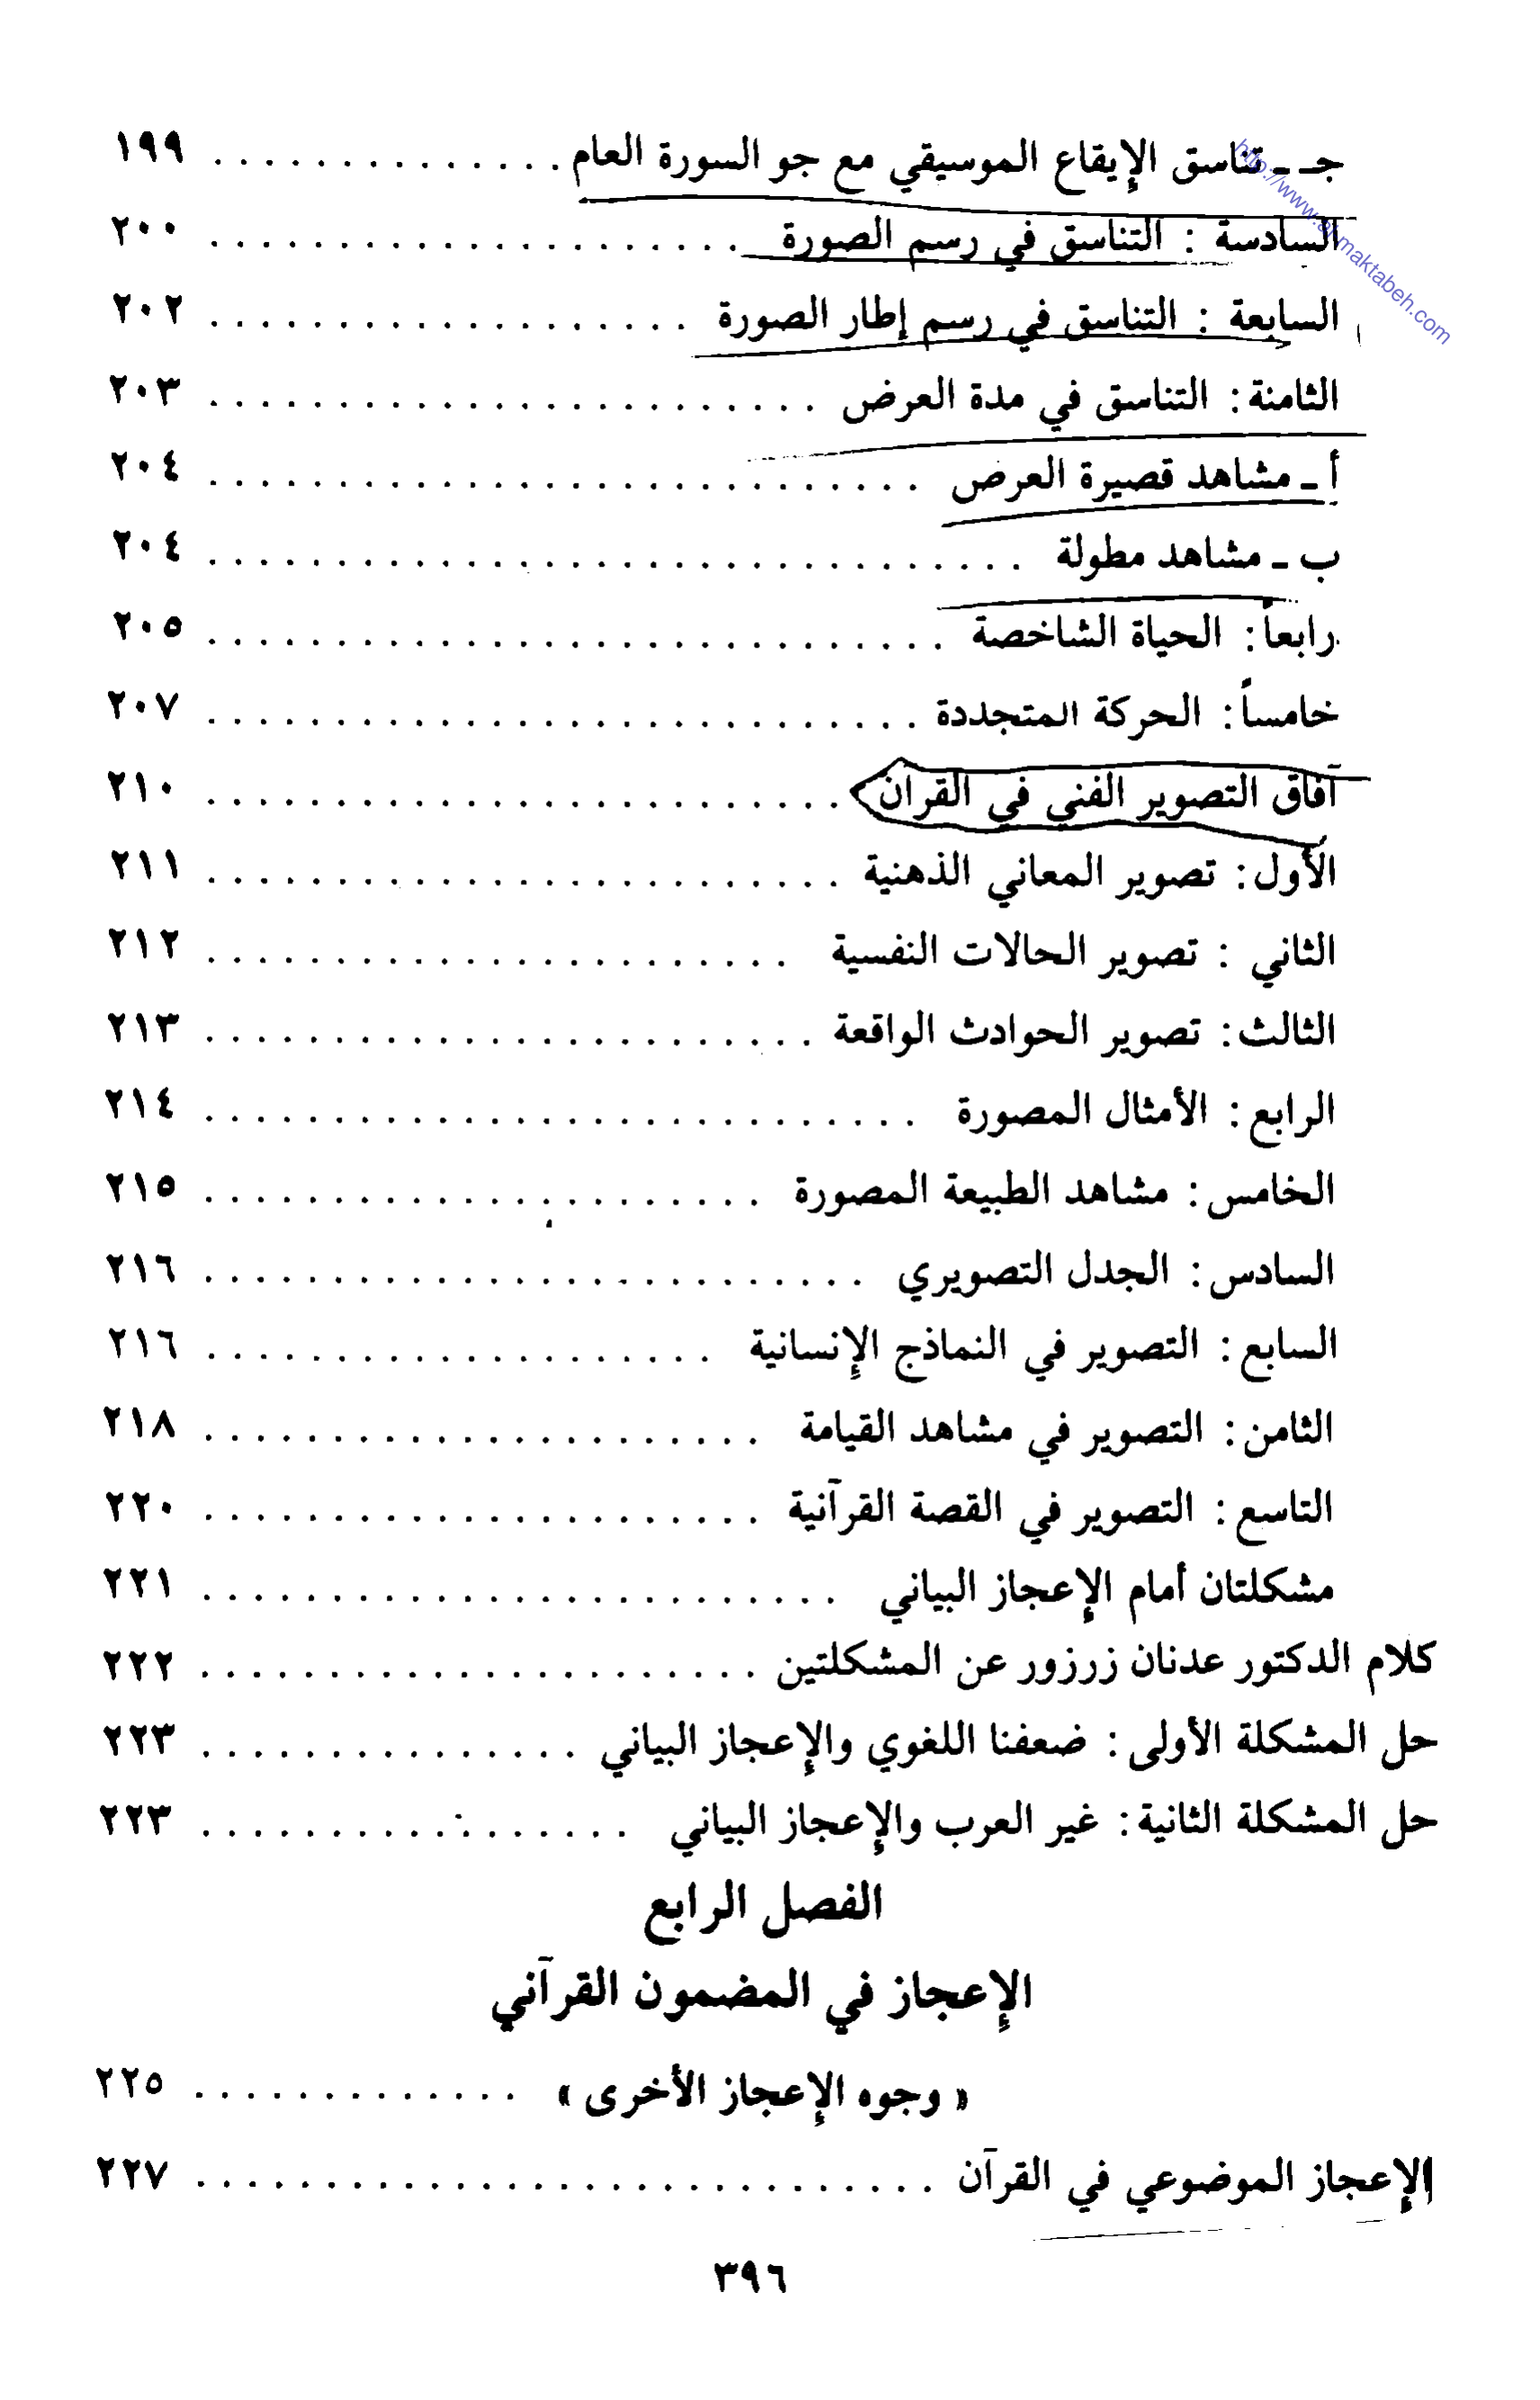 جـ ـ تناسق الإيقاع الموسيقي مع جو السورة العام . . . . . . . . . . . . . . ١٩٩
السادسة : التناسق في رسم الصورة . . . . . . . . . . . . . . . . . . . . . ٢٠٠
السابعة : التناسق في رسم إطار الصورة . . . . . . . . . . . . . . . . . . . ٢٠٢
الثامنة : التناسق في مدة العرض . . . . . . . . . . . . . . . . . . . . . . . . ٢٠٣
أ ـ مشاهد قصيرة العرض . . . . . . . . . . . . . . . . . . . . . . . . . . . . ٢٠٤
ب ـ مشاهد مطولة . . . . . . . . . . . . . . . . . . . . . . . . . . . . . . . . ٢٠٤
رابعاً : الحياة الشاخصة . . . . . . . . . . . . . . . . . . . . . . . . . . . . . ٢٠٥
خامساً : الحركة المتجددة . . . . . . . . . . . . . . . . . . . . . . . . . . . . ٢٠٧
آفاق التصوير الفني في القرآن . . . . . . . . . . . . . . . . . . . . . . . . . ٢١٠
الأول : تصوير المعاني الذهنية . . . . . . . . . . . . . . . . . . . . . . . . . ٢١١
الثاني : تصوير الحالات النفسية . . . . . . . . . . . . . . . . . . . . . . . ٢١٢
الثالث : تصوير الحوادث الواقعة . . . . . . . . . . . . . . . . . . . . . . . . ٢١٣
الرابع : الأمثال المصورة . . . . . . . . . . . . . . . . . . . . . . . . . . . . ٢١٤
الخامس : مشاهد الطبيعة المصورة . . . . . . . . . . . . . . . . . . . . . . ٢١٥
السادس : الجدل التصويري . . . . . . . . . . . . . . . . . . . . . . . . . . ٢١٦
السابع : التصوير في النماذج الإنسانية . . . . . . . . . . . . . . . . . . . . ٢١٦
الثامن : التصوير في مشاهد القيامة . . . . . . . . . . . . . . . . . . . . . . ٢١٨
التاسع : التصوير في القصة القرآنية . . . . . . . . . . . . . . . . . . . . . . ٢٢٠
مشكلتان أمام الإعجاز البياني . . . . . . . . . . . . . . . . . . . . . . . . . ٢٢١
كلام الدكتور عدنان زرزور عن المشكلتين . . . . . . . . . . . . . . . . . . . . . . ٢٢٢
حل المشكلة الأولى : ضعفنا اللغوي والإعجاز البياني . . . . . . . . . . . . . . . ٢٢٣
حل المشكلة الثانية : غير العرب والإعجاز البياني . . . . . . . . . . . . . . . . . ٢٢٣
الفصل الرابع
الإعجاز في المضمون القرآني
« وجوه الإعجاز الأخرى » . . . . . . . . . . . . . ٢٢٥
الإعجاز الموضوعي في القرآن . . . . . . . . . . . . . . . . . . . . . . . . . . . . . ٢٢٧
٣٩٦